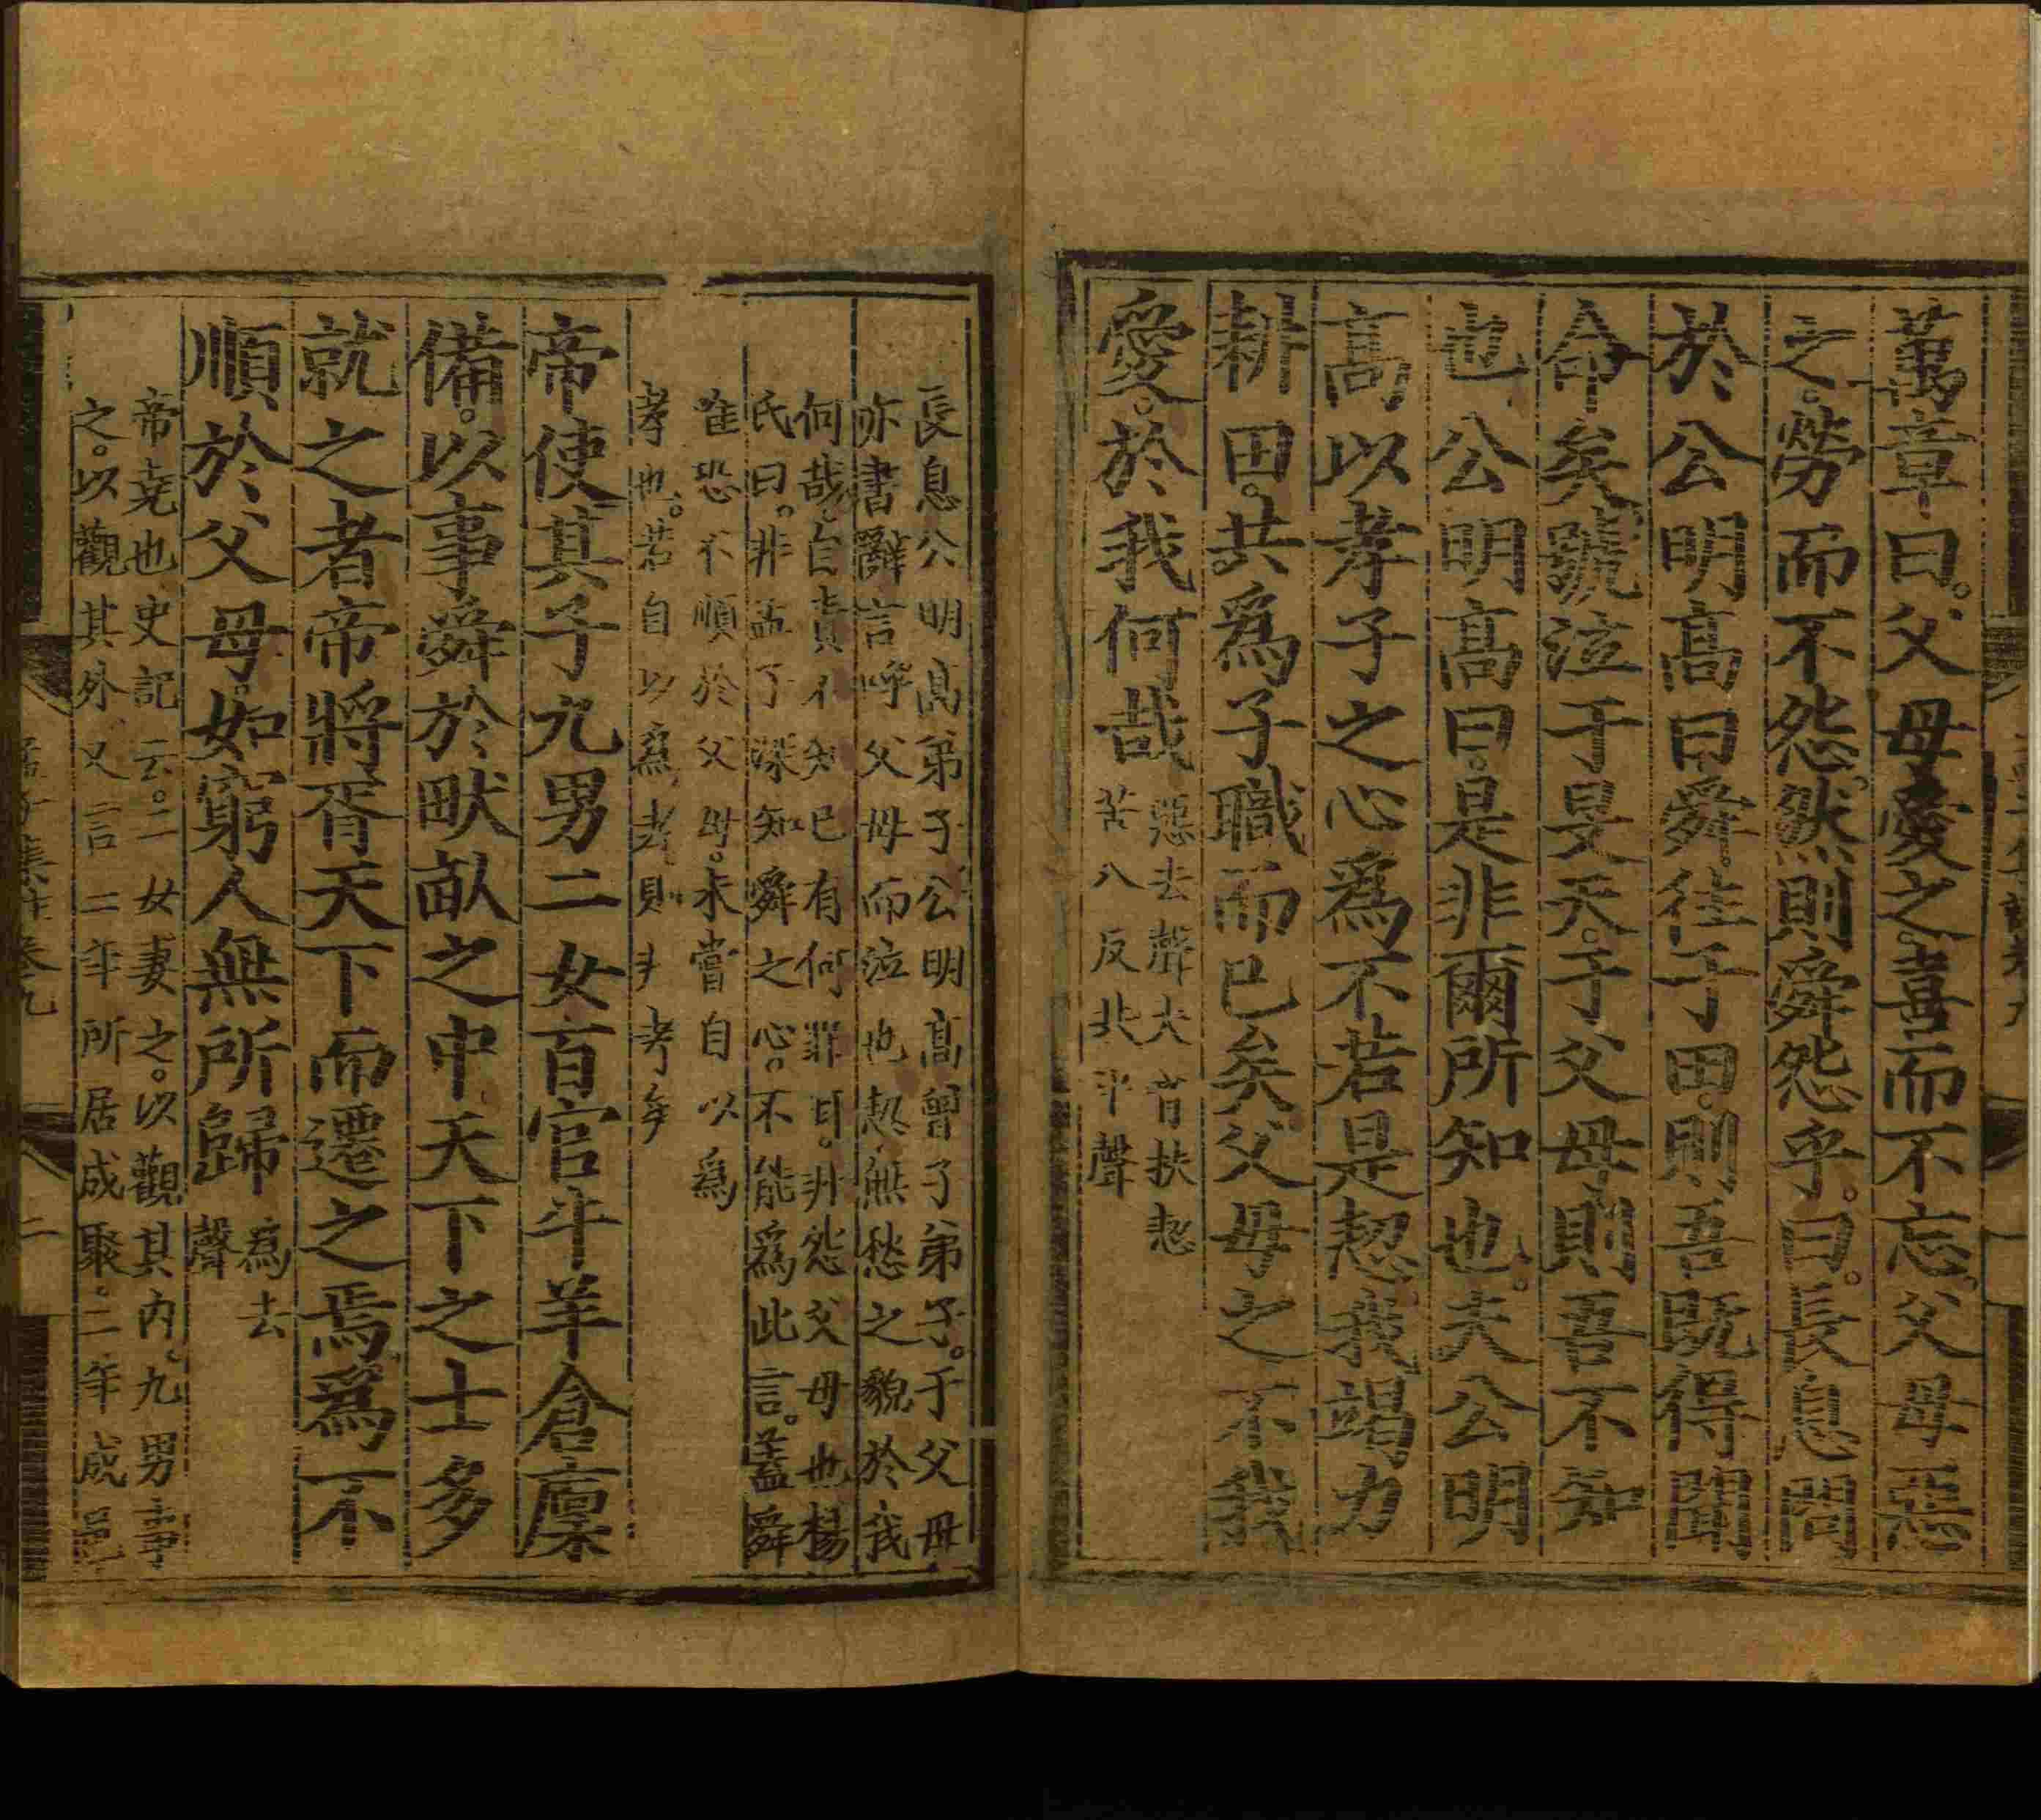 萬章曰。父母愛之。喜而不忘。父母惡
之。勞而不怨。然則舜怨乎。曰。長息問
於公明高曰。舜往于田。則吾既得聞
命矣。號泣于旻天。于父母則吾不知
也。公明高曰。是非爾所知也。夫公明
高以孝子之心爲不若是恝。我竭力
耕田。共爲子職而已矣。父母之不我
愛。於我何哉
惡去聲夫音扶恝
苦八反共平聲
長息公明高弟子公明高曾子弟子。于父母
亦書辭言呼父母而泣也恝無愁之貌於我
何哉。自責不知己有何罪耳。非怨父母也楊
氏曰。非孟子深知舜之心。不能爲此言。蓋舜
惟恐不順於父母。未嘗自以爲
孝也。若自以爲孝則非孝矣
帝使其子九男二女百官牛羊倉廩
備。以事舜於畎畝之中天下之士多
就之者帝將胥天下而遷之焉。爲不
順於父母。如窮人無所歸
爲去
聲
帝堯也史記云。二女妻之。以觀其內。九男事
之。以觀其外又言一年所居成聚。二年成邑
孟子集註卷九
二